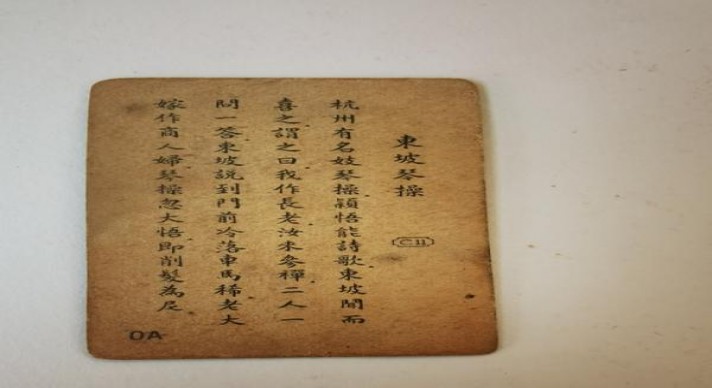 東坡琴操
C11
杭州有名妓琴操穎悟能詩歌東坡聞而
喜之謂之曰我作長老汝来參禪二人一
問一答東坡說到門前冷落車馬稀老大
嫁作商人婦琴操忽大悟即削髮為尼
OA